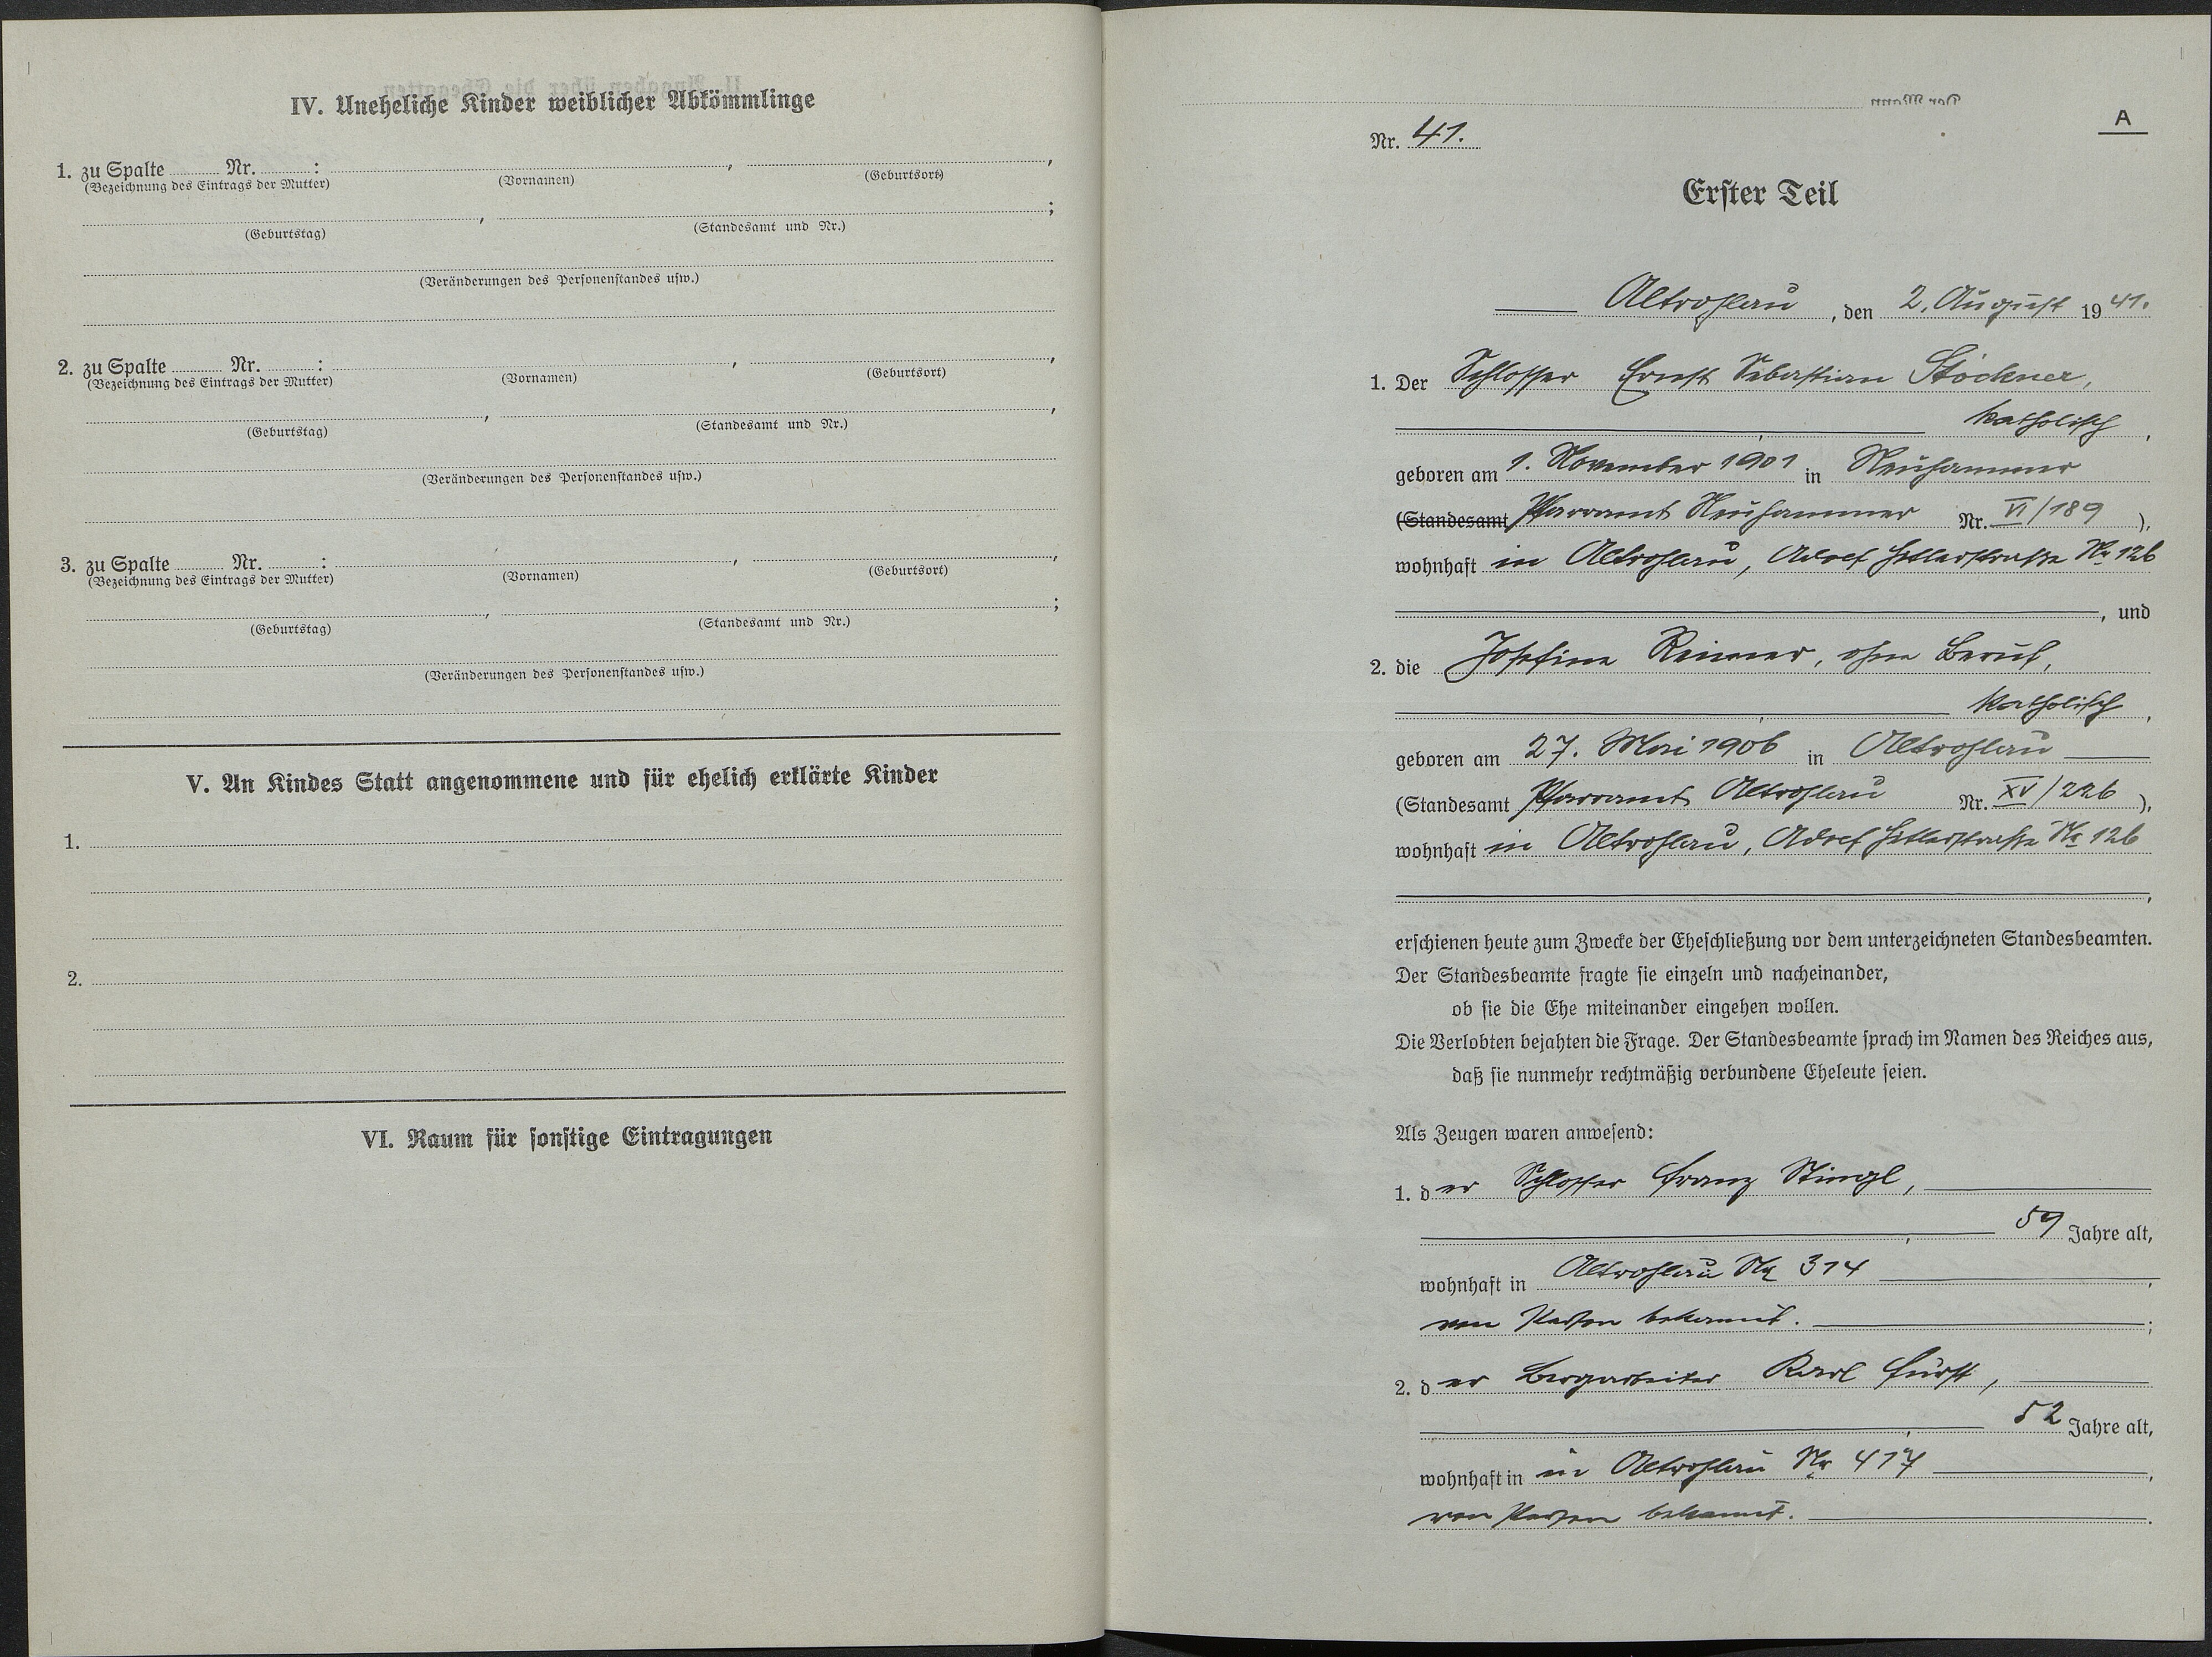 IV. Uneheliche Kinder weiblicher Abkömmlinge
1. zu Spalte ........ Nr. ........ : , ,
(Bezeichnung des Eintrags der Mutter) (Vornamen) (Geburtsort)
, ;
(Geburtstag) (Standesamt und Nr.)
(Veränderungen des Personenstandes usw.)
2. zu Spalte ........ Nr. ........ : , ,
(Bezeichnung des Eintrags der Mutter) (Vornamen) (Geburtsort)
, ,
(Geburtstag) (Standesamt und Nr.)
(Veränderungen des Personenstandes usw.)
3. zu Spalte ........ Nr. ........ : , ,
(Bezeichnung des Eintrags der Mutter) (Vornamen) (Geburtsort)
, ;
(Geburtstag) (Standesamt und Nr.)
(Veränderungen des Personenstandes usw.)
V. An Kindes Statt angenommene und für ehelich erklärte Kinder
1.
2.
VI. Raum für sonstige Eintragungen
A
Nr. 41.
Erster Teil
Altrohlau, den 2. August 1941.
1. Der Schlosser Ernst Sebastian Stöckner,
katholisch,
geboren am 1. November 1901 in Neuhammer
(Standesamt Pfarramt Neuhammer Nr. VI/189),
wohnhaft in Altrohlau, Adolf Hitlerstraße Nr 126
, und
2. die Josefine Reimer, ohne Beruf,
katholisch,
geboren am 27. Mai 1906 in Altrohlau
(Standesamt Pfarramt Altrohlau Nr. XV/226),
wohnhaft in Altrohlau, Adolf Hitlerstraße Nr 126
,
erschienen heute zum Zwecke der Eheschließung vor dem unterzeichneten Standesbeamten.
Der Standesbeamte fragte sie einzeln und nacheinander,
ob sie die Ehe miteinander eingehen wollen.
Die Verlobten bejahten die Frage. Der Standesbeamte sprach im Namen des Reiches aus,
daß sie nunmehr rechtmäßig verbundene Eheleute seien.
Als Zeugen waren anwesend:
1. der Schlosser Franz Stingl,
, 59 Jahre alt,
wohnhaft in Altrohlau Nr 314,
von Person bekannt. ;
2. der Bergarbeiter Karl Fürst,
, 52 Jahre alt,
wohnhaft in in Altrohlau Nr 417,
von Person bekannt. .